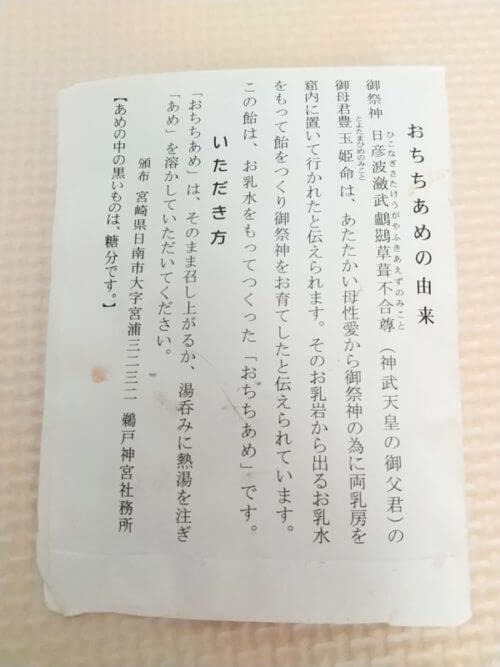 おちちあめの由来
ひこなぎさたけうがやふきあえずのみこと
御祭神 日彦波瀲武鸕鷀草葺不合尊（神武天皇の御父君）の
とよたまひめのみこと
御母君豊玉姫命は、あたたかい母性愛から御祭神の為に両乳房を
窟内に置いて行かれたと伝えられます。そのお乳岩から出るお乳水
をもって飴をつくり御祭神をお育てしたと伝えられています。
この飴は、お乳水をもってつくった「おちちあめ」です。
いただき方
「おちちあめ」は、そのまま召し上がるか、湯呑みに熱湯を注ぎ
「あめ」を溶かしていただいてください。
頒布 宮崎県日南市大字宮浦三二三二 鵜戸神宮社務所
【あめの中の黒いものは、糖分です。】